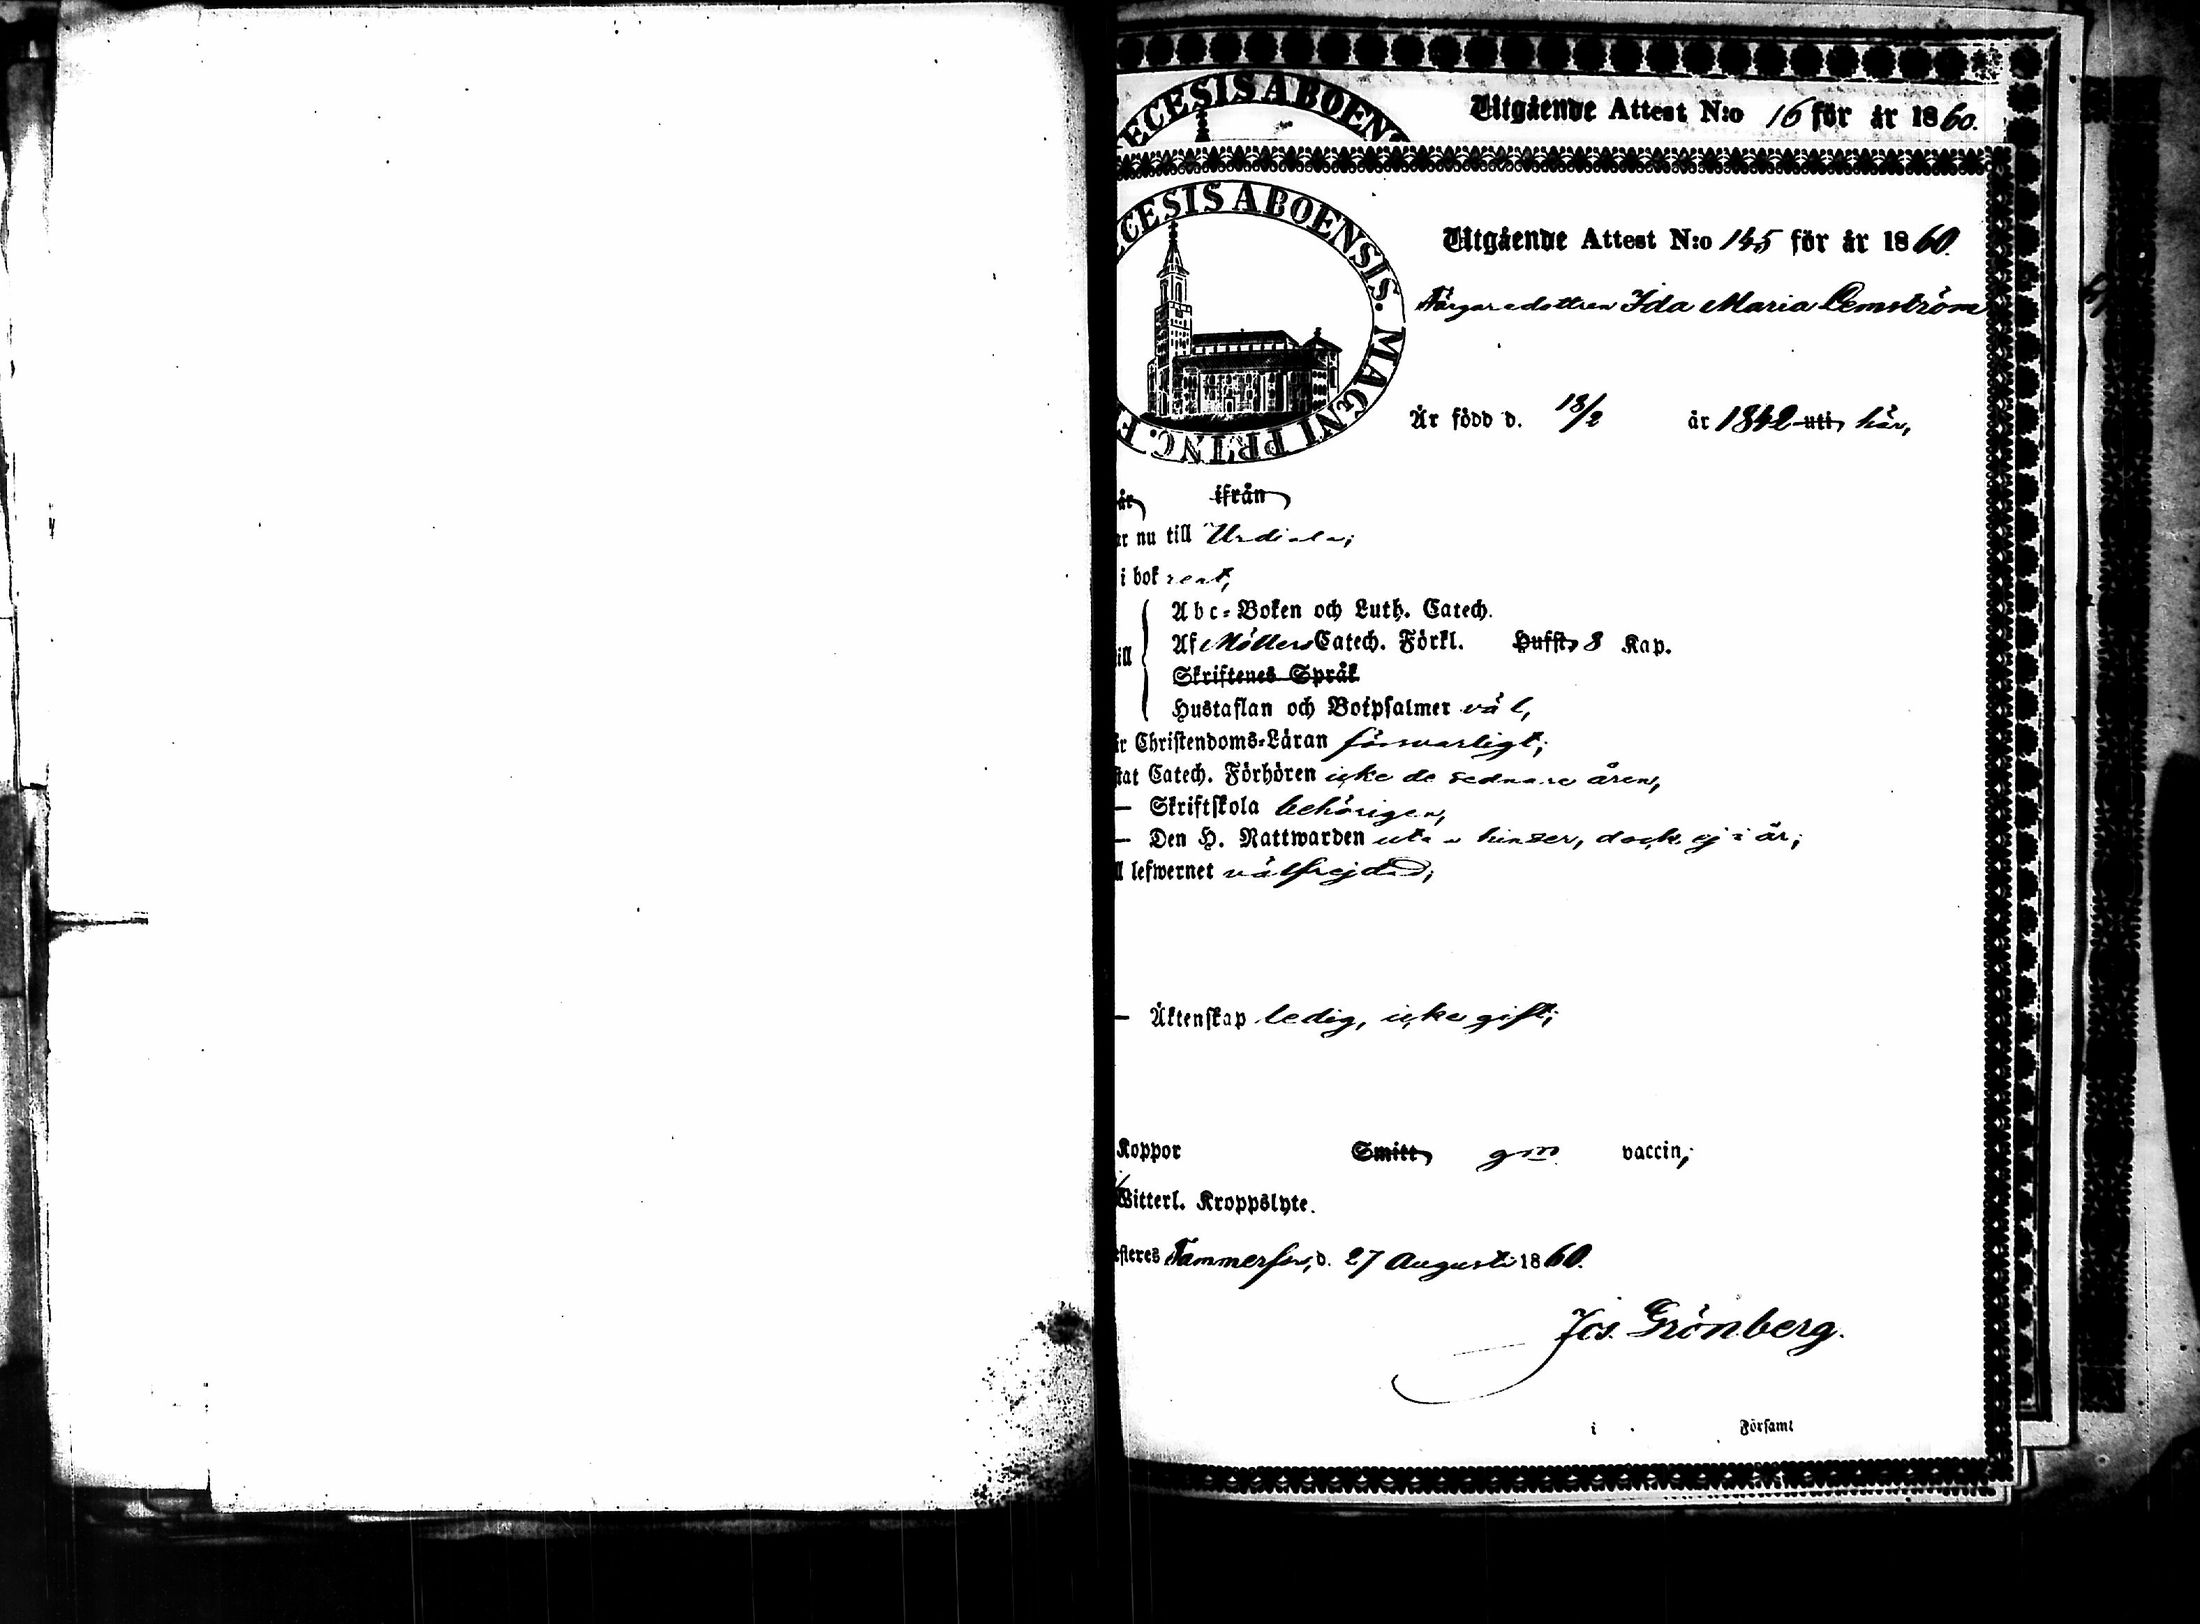 ECESIS ABOENS
Utgående Attest N:o 16 för år 1860.
CESIS ABOENSIS. MAGNI PRINC. F
Utgående Attest N:o 145 för år 1860.
Färgaredottren Ida Maria Lemström
Är född d. 18/2 år 1842 uti här,
år ifrån
er nu till Urdiala;
i bok rent,
Abc-Boken och Luth. Catech.
till Af Möllers Catech. Förkl. Hufst. 8 Kap.
Skriftenes Språk
Hustaflan och Botpsalmer väl,
är Christendoms-Läran försvarligt;
stat Catech. Förhören icke de sednare åren,
— Skriftskola behörigen,
— Den H. Nattwarden utan hinder, dock ej i år;
ll lefwernet välfrejdad;
— Äktenskap ledig, icke gift;
Koppor Smitt gm vaccin;
Witterl. Kroppslyte.
esteres Tammerfors, d. 27 Augusti 1860.
Jos. Grönberg.
i Församl